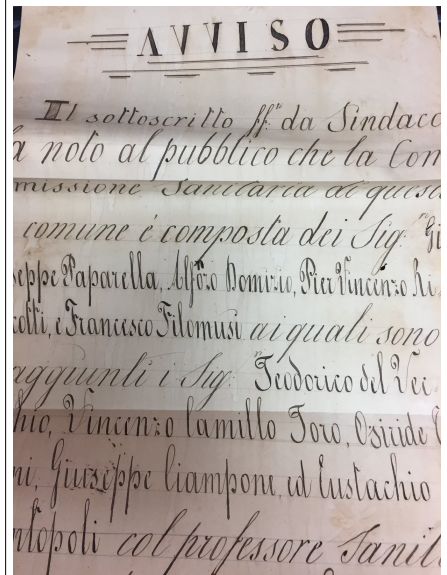 AVVISO
Il sottoscritto ff.ⁿ da Sindac
a noto al pubblico che la Com
missione Sanitaria di quest
comune é composta dei Sig.ⁿ Gi
seppe Paparella, Alfózo Domizio, Pier Vincenzo Ri
cotti, e Francesco Filomusi ai quali sono
aggiunti i Sig.ⁿ Teodorico del Vec
hio, Vincenzo Camillo Toro, Osiride
ni, Giuseppe Ciamponi, ed Eustachio
ntopoli col professore Sanit